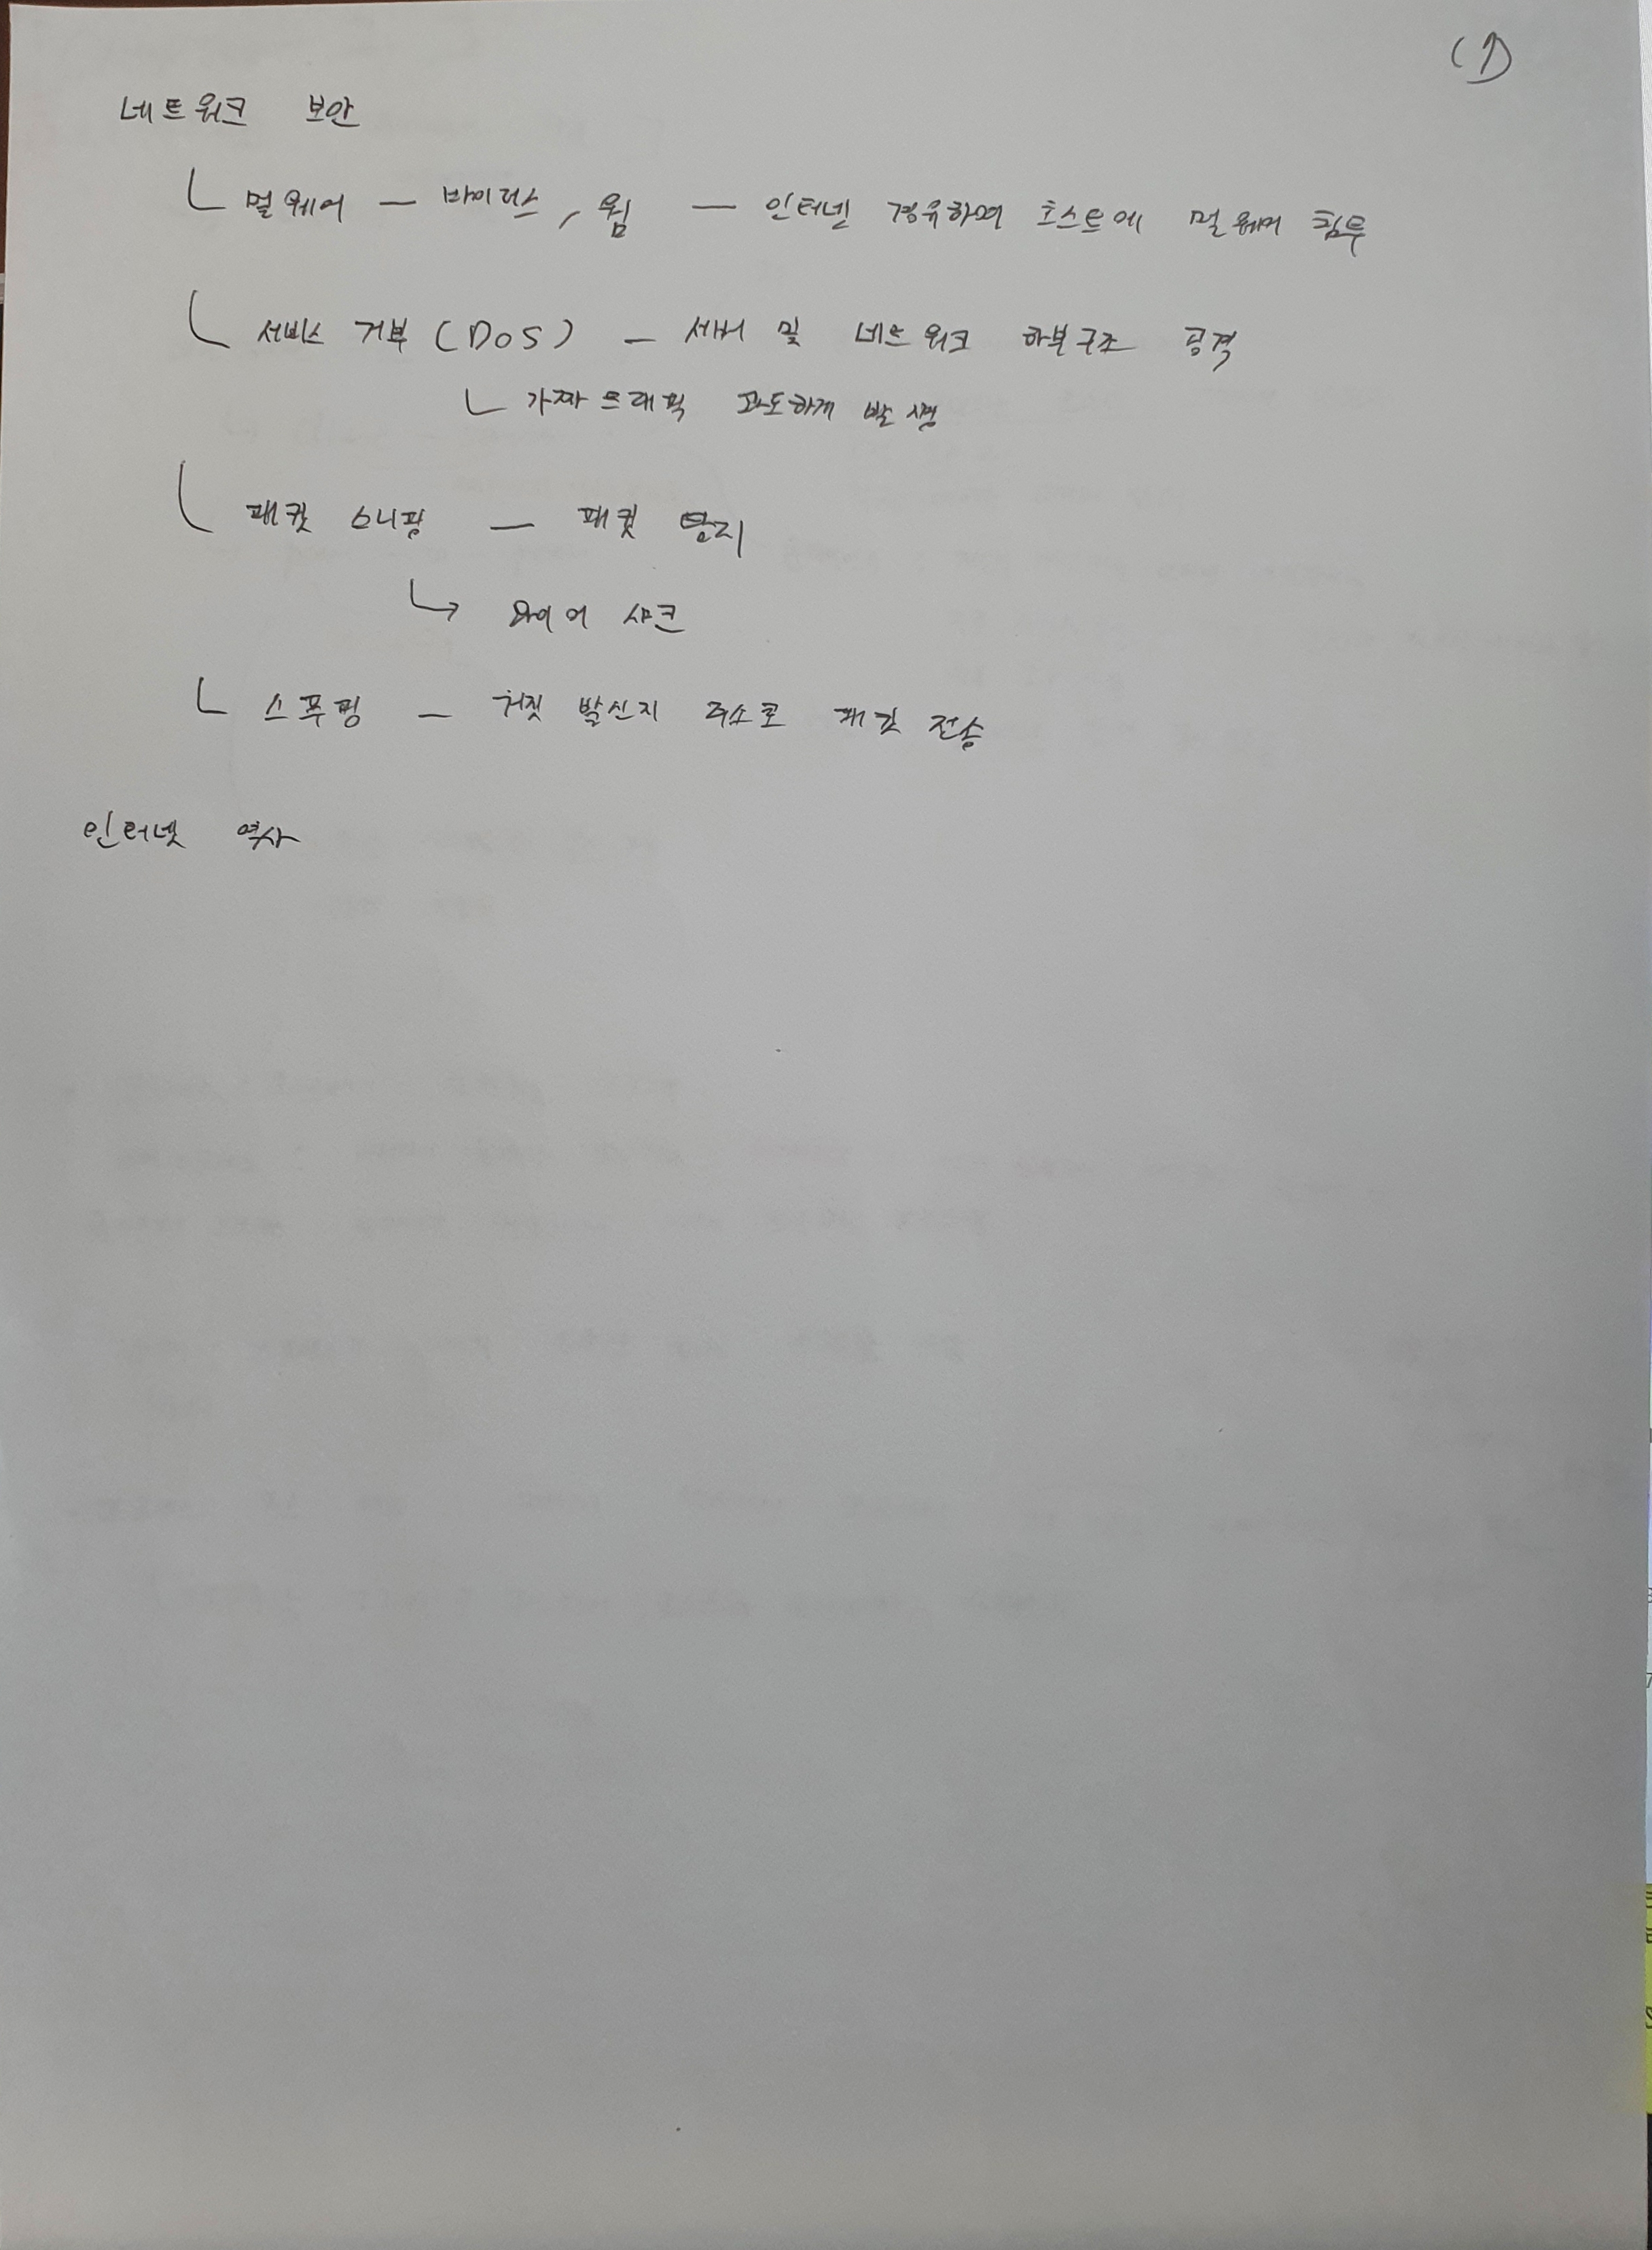 (1)
네트워크 보안
멀웨어 — 바이러스, 웜 — 인터넷 경유하여 호스트에 멀웨어 침투
서비스 거부 (DoS) — 서버 및 네트워크 하부구조 공격
가짜 트래픽 과도하게 발생
패킷 스니핑 — 패킷
와이어 샤크
스푸핑 — 거짓 발신지 주소로 패킷 전송
인터넷 역사